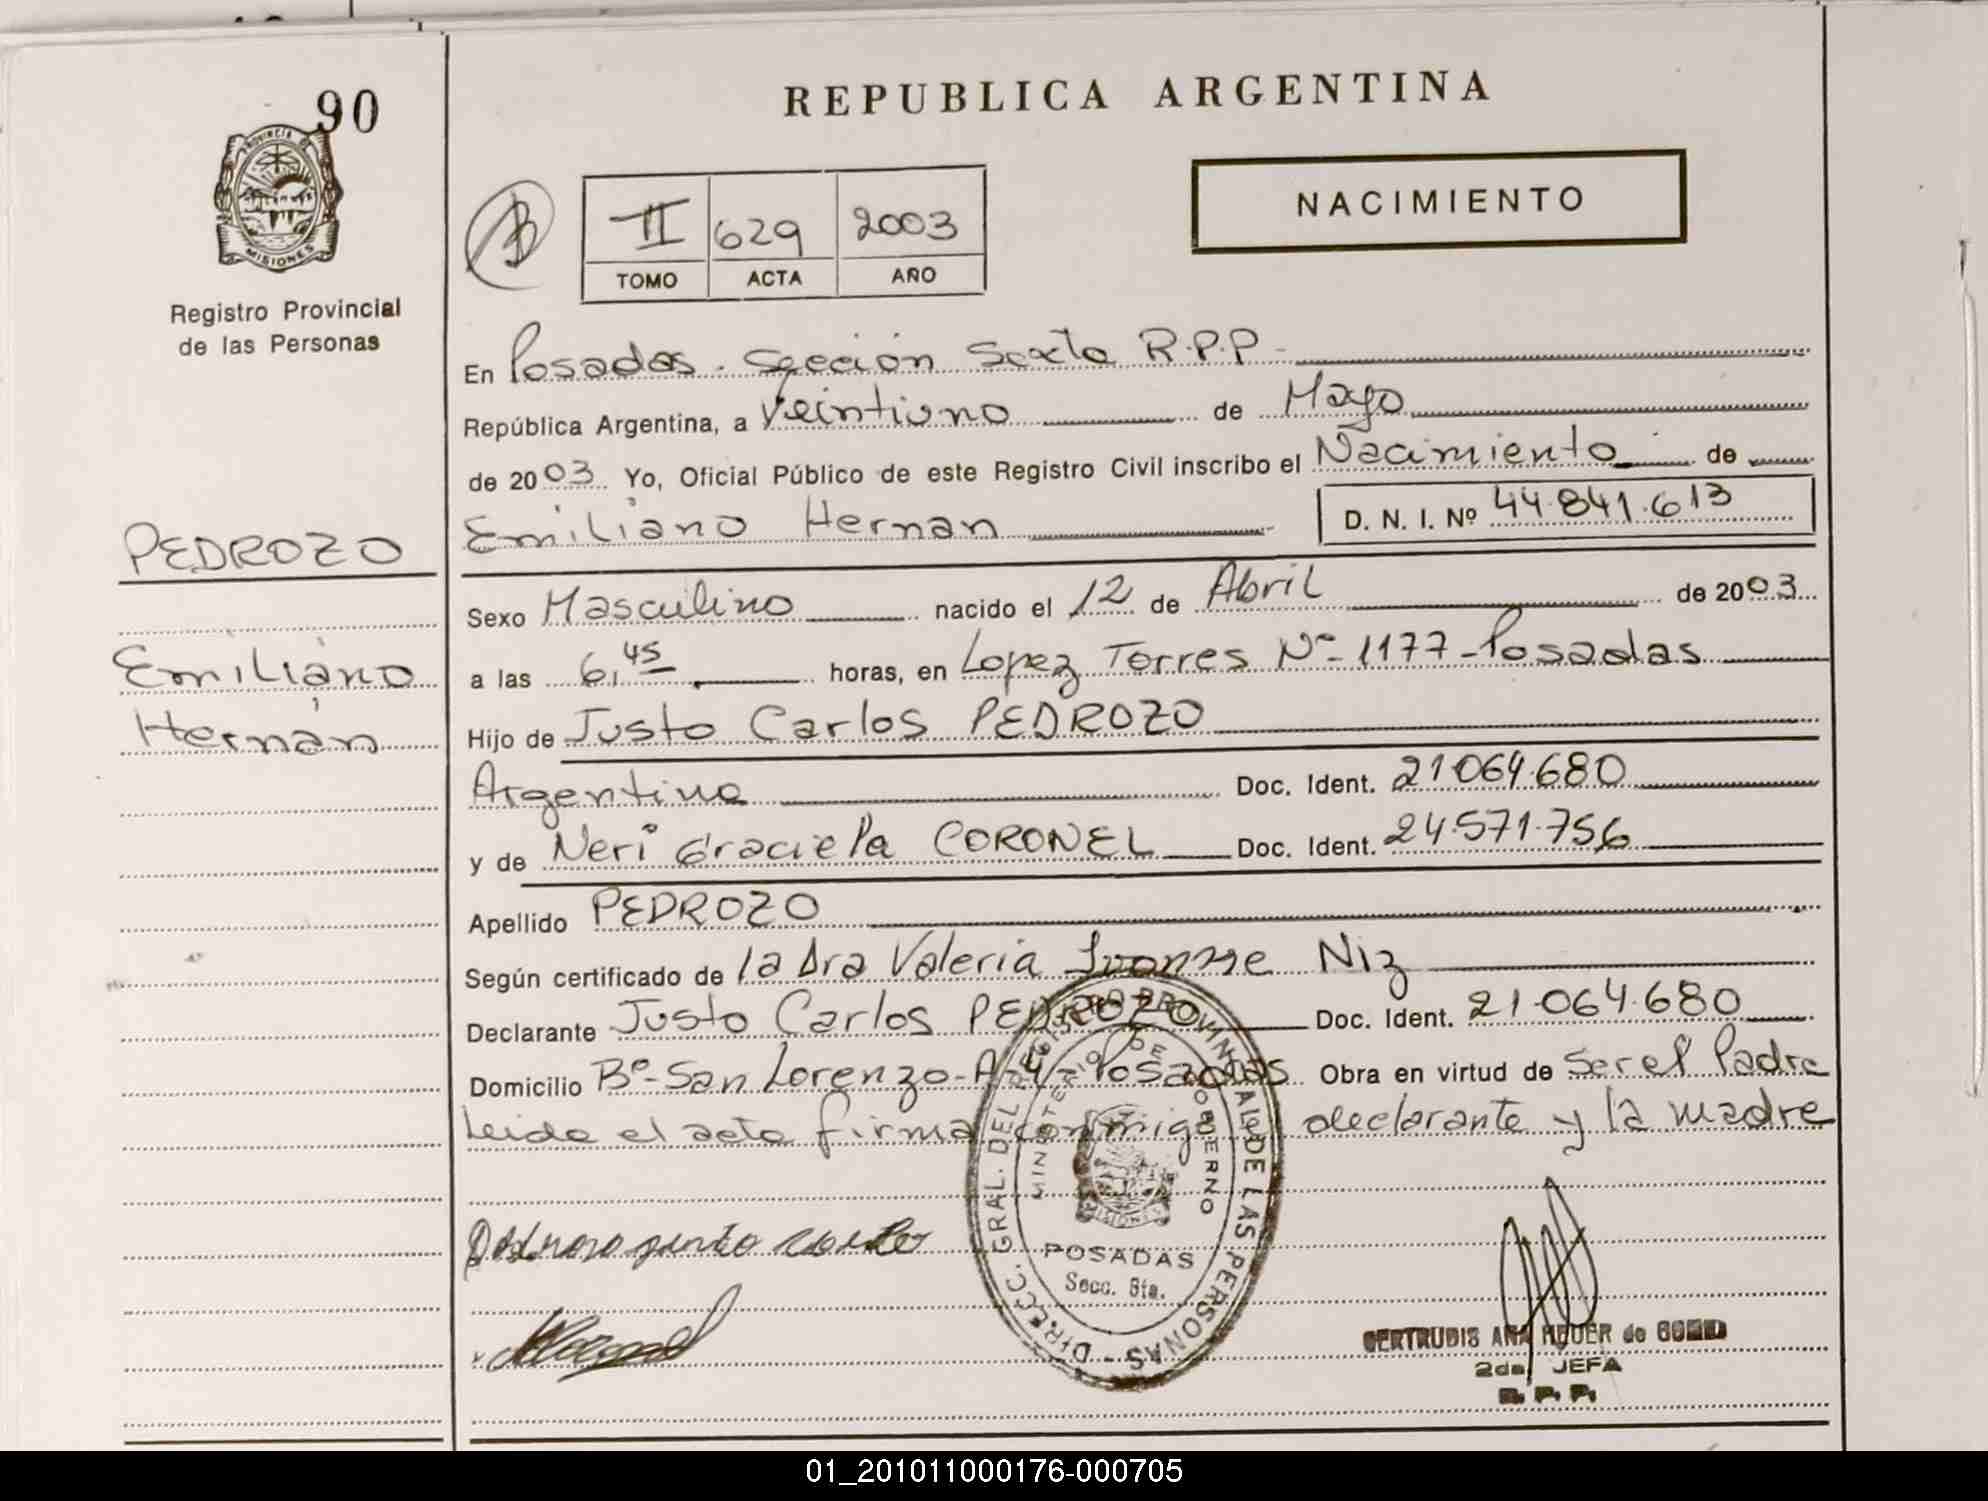 90
PROVINCIA DE
MISIONES
Registro Provincial
de las Personas
PEDROZO
Emiliano
Hernán
REPUBLICA ARGENTINA
NACIMIENTO
II 629 2003
TOMO ACTA AÑO
En Posadas - Sección Sexta R.P.P -
República Argentina, a Veintiuno de Mayo
de 2003 Yo, Oficial Público de este Registro Civil inscribo el Nacimiento de
Emiliano Hernan D. N. I. Nº 44.841.613
Sexo Masculino nacido el 12 de Abril de 2003
a las 6,45 horas, en Lopez Torres Nº 1177 - Posadas
Hijo de Justo Carlos PEDROZO
Argentino Doc. Ident. 21.064.680
y de Neri Graciela CORONEL Doc. Ident. 24.571.756
Apellido PEDROZO
Según certificado de la Dra Valeria Ivonne Niz
Declarante Justo Carlos PEDROZO Doc. Ident. 21.064.680
Domicilio Bº San Lorenzo - A-4 - Posadas Obra en virtud de ser el Padre
Leida el acta firma conmigo el declarante y la madre
DIRECC. GRAL. DEL REGISTRO PROVINCIAL DE LAS PERSONAS
MINISTERIO DE GOBIERNO
MISIONES
POSADAS
Secc. 6ta.
GERTRUDIS ANA HEUER de
2da JEFA
R. P. P.
01_201011000176-000705